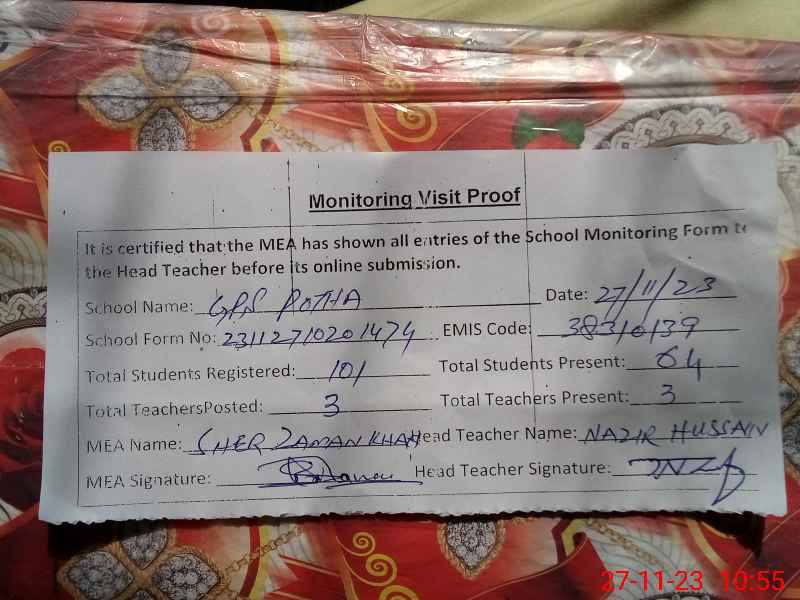 Monitoring Visit Proof
It is certified that the MEA has shown all entries of the School Monitoring Form to
the Head Teacher before its online submission.
School Name: GPS POTHA Date: 27/11/23
School Form No: 23112710201474 EMIS Code: 38310139
Total Students Registered: 101 Total Students Present: 64
Total TeachersPosted: 3 Total Teachers Present: 3
MEA Name: SHER ZAMAN KHAN Head Teacher Name: NAZIR HUSSAIN
MEA Signature: Head Teacher Signature:
27-11-23 10:55